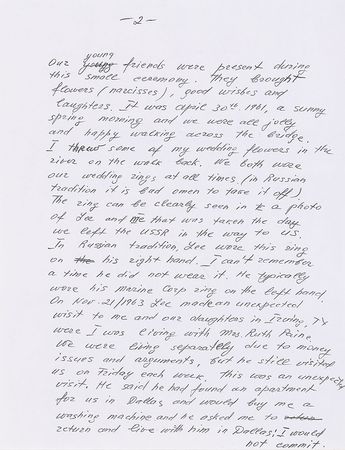 - 2 -
young
Our young friends were present during
this small ceremony. They boought
flowers (narcisses), good wishes and
laughters. It was April 30th. 1961, a sunny
spring morning and we were all jolly
and happy walking across the bridge.
I threw some of my wedding flowers in the
river on the walk back. We both wore
our wedding rings at all times (in Russian
tradition it is bad omen to take it off)
The ring can be clearly seen in a photo
of Lee and me that was taken the day
we left the USSR in the way to US.
In Russian tradition, Lee wore this ring
on the his right hand. I can't remember
a time he did not wear it. He typically
wore his marine Corp ring on the left hand.
On Nov. 21/1963 Lee made an unexpected
visit to me and our daughters in Irving, TX
were I was living with Mrs. Ruth Paine.
We were living separately due to money
issues and arguments, but he still visited
us on Friday each week. This was an unexpected
visit. He said he had found an apartment
for us in Dallas and would buy me a
washing machine and he asked me to
return and live with him in Dallas; I would
not commit.